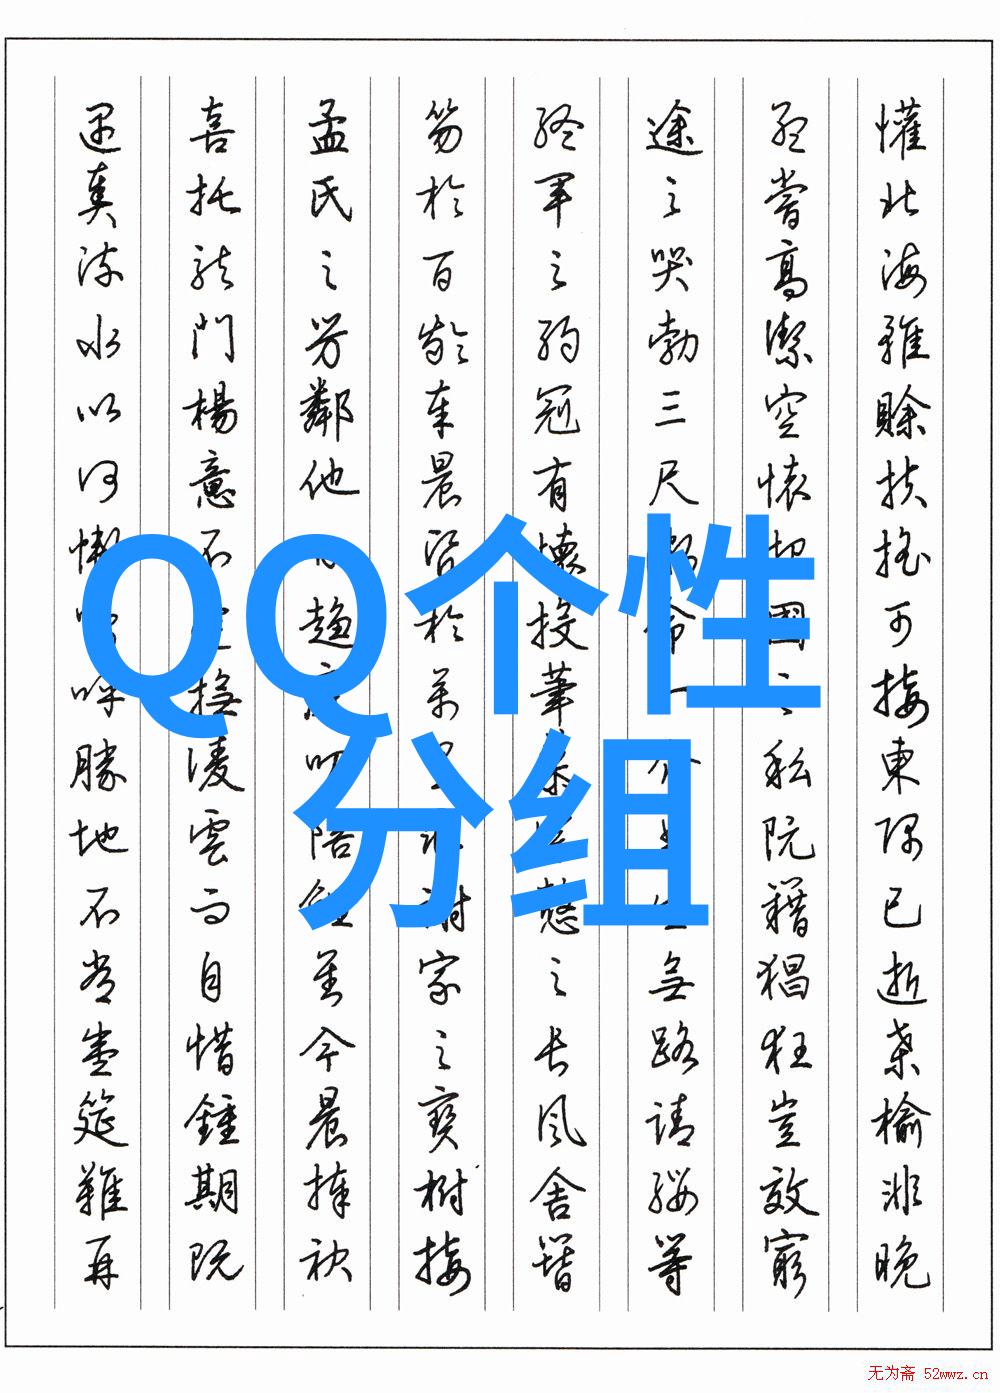 懽北海雖賒扶搖可接東隅已逝桑榆非晚
孟嘗高潔空懷國之私阮籍猖狂豈效窮
途之哭勃三尺命介無路請纓等
終軍之弱冠有懷投筆愨之長風舍簪
笏於百齡奉晨昏於萬謝家之寶樹接
孟氏之芳鄰他趨叨陪鯉對今晨捧袂
喜托龍門楊意不撫凌雲而自惜鍾期既
遇奏流水以何慚呼勝地不常盛筵難再
QQ个性
分组
无为斋 52wwz.cn